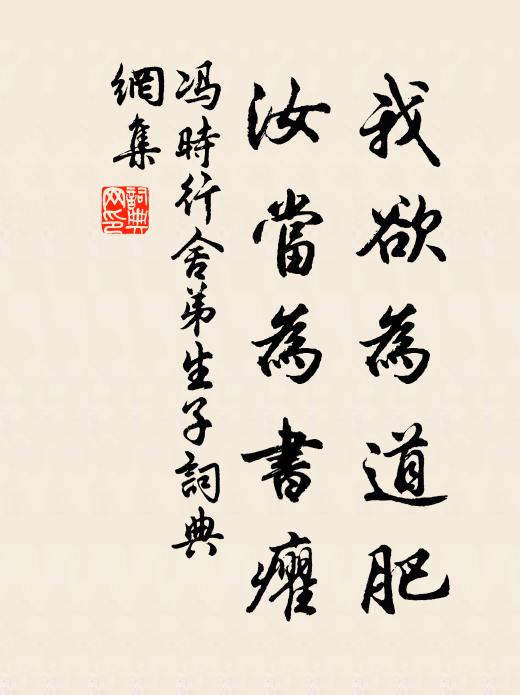 我欲為道肥
汝當為書癯
馮時行舍弟生子詞典
網集
詞典
网印